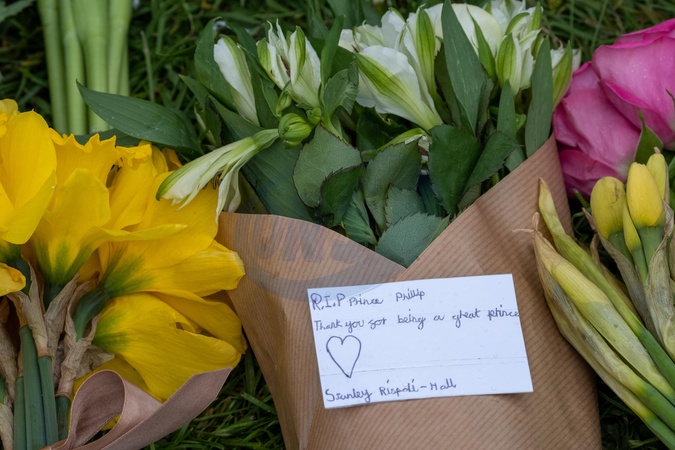 R.I.P Prince Phillip
Thank you for being a great prince
Stanley Rispoli-Hall